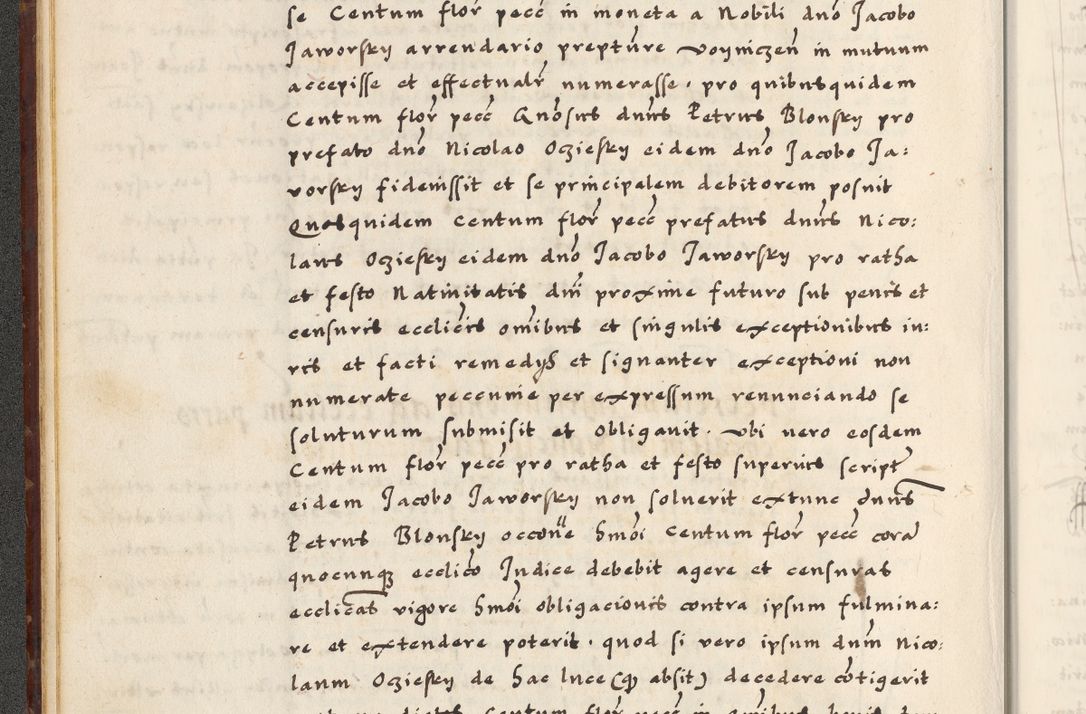 se Centum flor̃ pecc̃ in moneta a Nobili dnõ Jacobo
Jaworsky arrendario preptũre voyniczeñ in mutuum
accepisse et effectualr̃ numerasse. pro quibusquidem
Centum flor̃ pecc̃ Gnõsus dnũs Petrus Blonsky pro
prefato dnõ Nicolao Oziesky eidem dnõ Jacobo Ja:
vorsky fideiussit et se principalem debitorem posuit
Quosquidem Centum flor̃ pecc̃ prefatus dnũs Nico:
laus Oziesky eidem dnõ Jacobo Jaworsky pro ratha
et festo Natiuitatis dnĩ proxime futuro sub penis et
censuris ecclicĩs om̃ibus et singulis exceptionibus iu:
ris et facti remedys et signanter exceptioni non
numerate peccunie per expressum renunciando se
soluturum submisit et obligauit. vbi uero eosdem
Centum flor̃ pecc̃ pro ratha et festo superius script̃
eidem Jacobo Jaworsky non soluerit extunc dnũs
Petrus Blonsky occõne hmõi Centum flor̃ pecc̃ corã
quocunq; ecclicõ Judice debebit agere et censuras
ecclicãs vigore hmõi obligacionis contra ipsum fulmina:
re et extendere poterit. quod si vero ipsum dnũm Nico:
laum Oziesky de hac luce (q̃ absit) decedere cõtigerit
Centum flor̃ pecc̃ in om̃ibus bonis